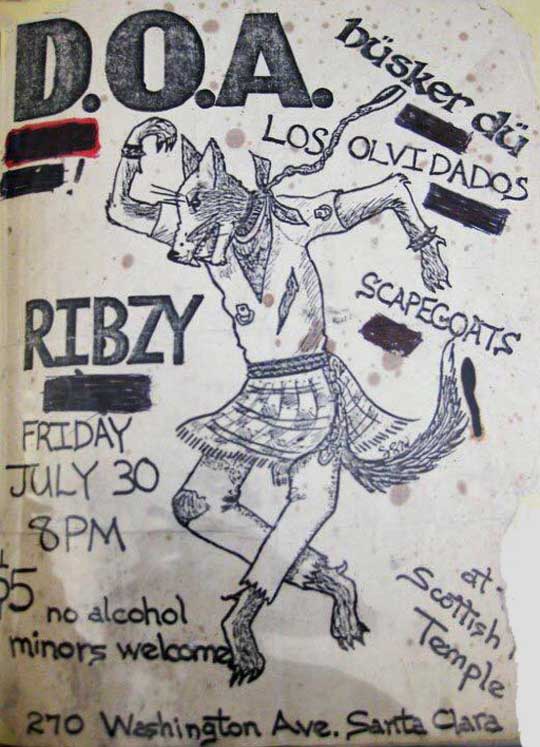 D.O.A.
hüsker dü
!
LOS OLVIDADOS
SCAPEGOATS
RIBZY
FRIDAY
JULY 30
8PM
$5 no alcohol
minors welcome
at
Scottish
Temple
270 Washington Ave. Santa Clara